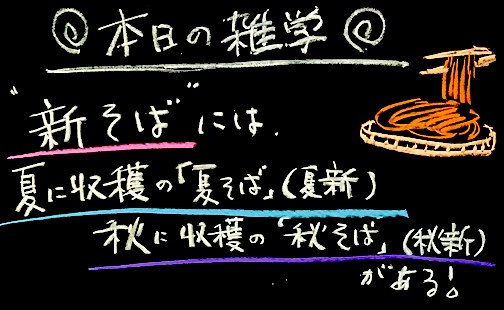 本日の雑学
"新そば"には、
夏に収穫の「夏そば」(夏新)
秋に収穫の「秋そば」(秋新)
がある!